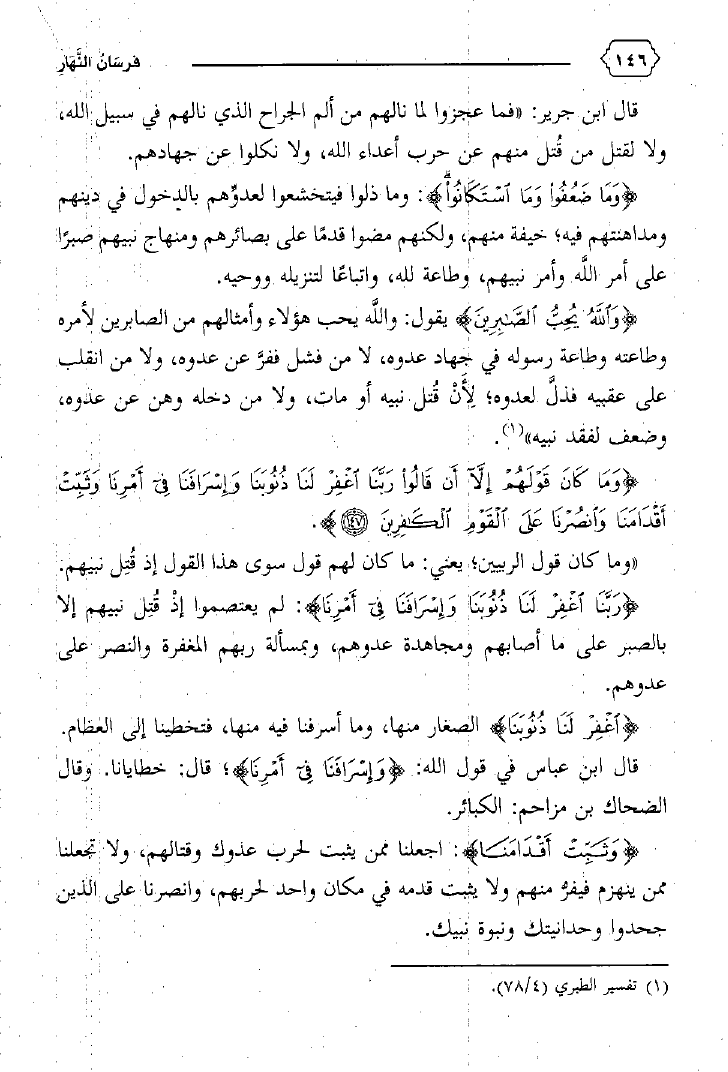 ١٤٦ فرسَانُ النَّهَارِ
قال ابن جرير: «فما عجزوا لما نالهم من ألم الجراح الذي نالهم في سبيل الله،
ولا لقتل من قُتل منهم عن حرب أعداء الله، ولا نكلوا عن جهادهم.
﴿وَمَا ضَعُفُوا۟ وَمَا ٱسْتَكَانُوا۟ۗ﴾: وما ذلوا فيتخشعوا لعدوِّهم بالدخول في دينهم
ومداهنتهم فيه؛ خيفة منهم، ولكنهم مضوا قدمًا على بصائرهم ومنهاج نبيهم صبرًا
على أمر اللَّه وأمر نبيهم، وطاعة لله، واتباعًا لتنزيله ووحيه.
﴿وَٱللَّهُ يُحِبُّ ٱلصَّٰبِرِينَ﴾ يقول: واللَّه يحب هؤلاء وأمثالهم من الصابرين لأمره
وطاعته وطاعة رسوله في جهاد عدوه، لا من فشل ففرَّ عن عدوه، ولا من انقلب
على عقبيه فذلَّ لعدوه؛ لِأَنْ قُتل نبيه أو مات، ولا من دخله وهن عن عدوه،
وضعف لفقد نبيه»(١).
﴿وَمَا كَانَ قَوْلَهُمْ إِلَّآ أَن قَالُوا۟ رَبَّنَا ٱغْفِرْ لَنَا ذُنُوبَنَا وَإِسْرَافَنَا فِىٓ أَمْرِنَا وَثَبِّتْ
أَقْدَامَنَا وَٱنصُرْنَا عَلَى ٱلْقَوْمِ ٱلْكَٰفِرِينَ ۝١٤٧﴾.
«وما كان قول الربيين؛ يعني: ما كان لهم قول سوى هذا القول إذ قُتِل نبيهم.
﴿رَبَّنَا ٱغْفِرْ لَنَا ذُنُوبَنَا وَإِسْرَافَنَا فِىٓ أَمْرِنَا﴾: لم يعتصموا إذْ قُتِل نبيهم إلا
بالصبر على ما أصابهم ومجاهدة عدوهم، وبمسألة ربهم المغفرة والنصر على
عدوهم.
﴿ٱغْفِرْ لَنَا ذُنُوبَنَا﴾ الصغار منها، وما أسرفنا فيه منها، فتخطينا إلى العظام.
قال ابن عباس في قول الله: ﴿وَإِسْرَافَنَا فِىٓ أَمْرِنَا﴾؛ قال: خطايانا. وقال
الضحاك بن مزاحم: الكبائر.
﴿وَثَبِّتْ أَقْدَامَنَا﴾: اجعلنا ممن يثبت لحرب عدوك وقتالهم، ولا تجعلنا
ممن ينهزم فيفرُّ منهم ولا يثبت قدمه في مكان واحد لحربهم، وانصرنا على الذين
جحدوا وحدانيتك ونبوة نبيك.
(١) تفسير الطبري (٧٨/٤).